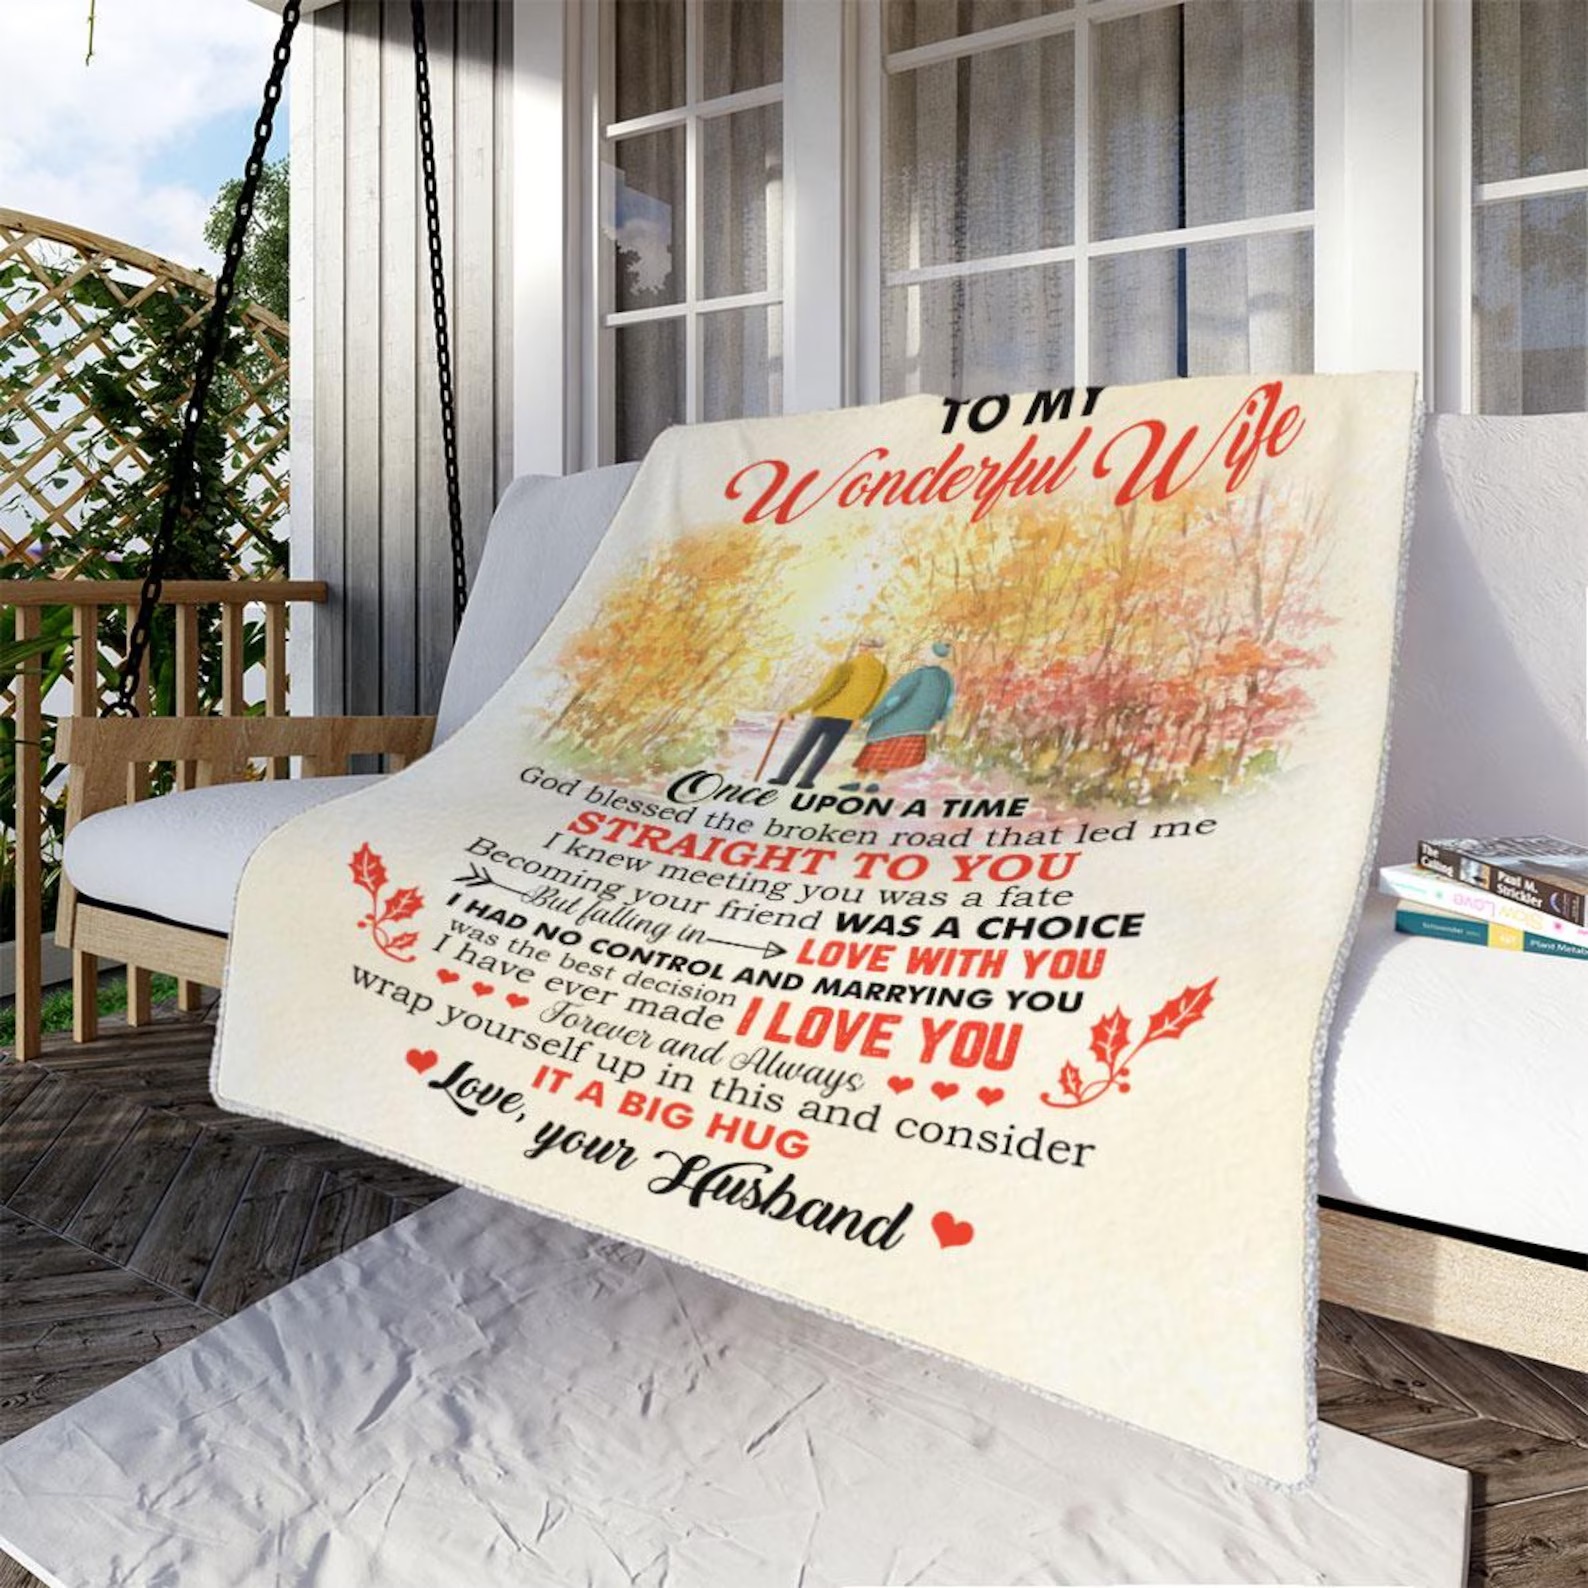 TO MY
Wonderful Wife
Once UPON A TIME
God blessed the broken road that led me
STRAIGHT TO YOU
I knew meeting you was a fate
Becoming your friend WAS A CHOICE
But falling in LOVE WITH YOU
I HAD NO CONTROL AND MARRYING YOU
was the best decision
I have ever made I LOVE YOU
Forever and Always
wrap yourself up in this and consider
IT A BIG HUG
Love, your Husband
The
Paul M.
Strickler
Slow Love
Plant Metab